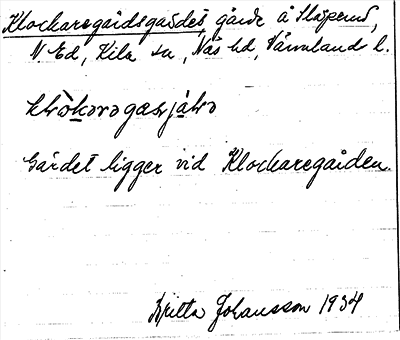 Klockaregårdsgärdet, gärde å Slagerud,
V Ed, Kila sn, Näs hd, Värmlands l.
Gärdet ligger vid Klockaregården.
Britta Johansson 1934